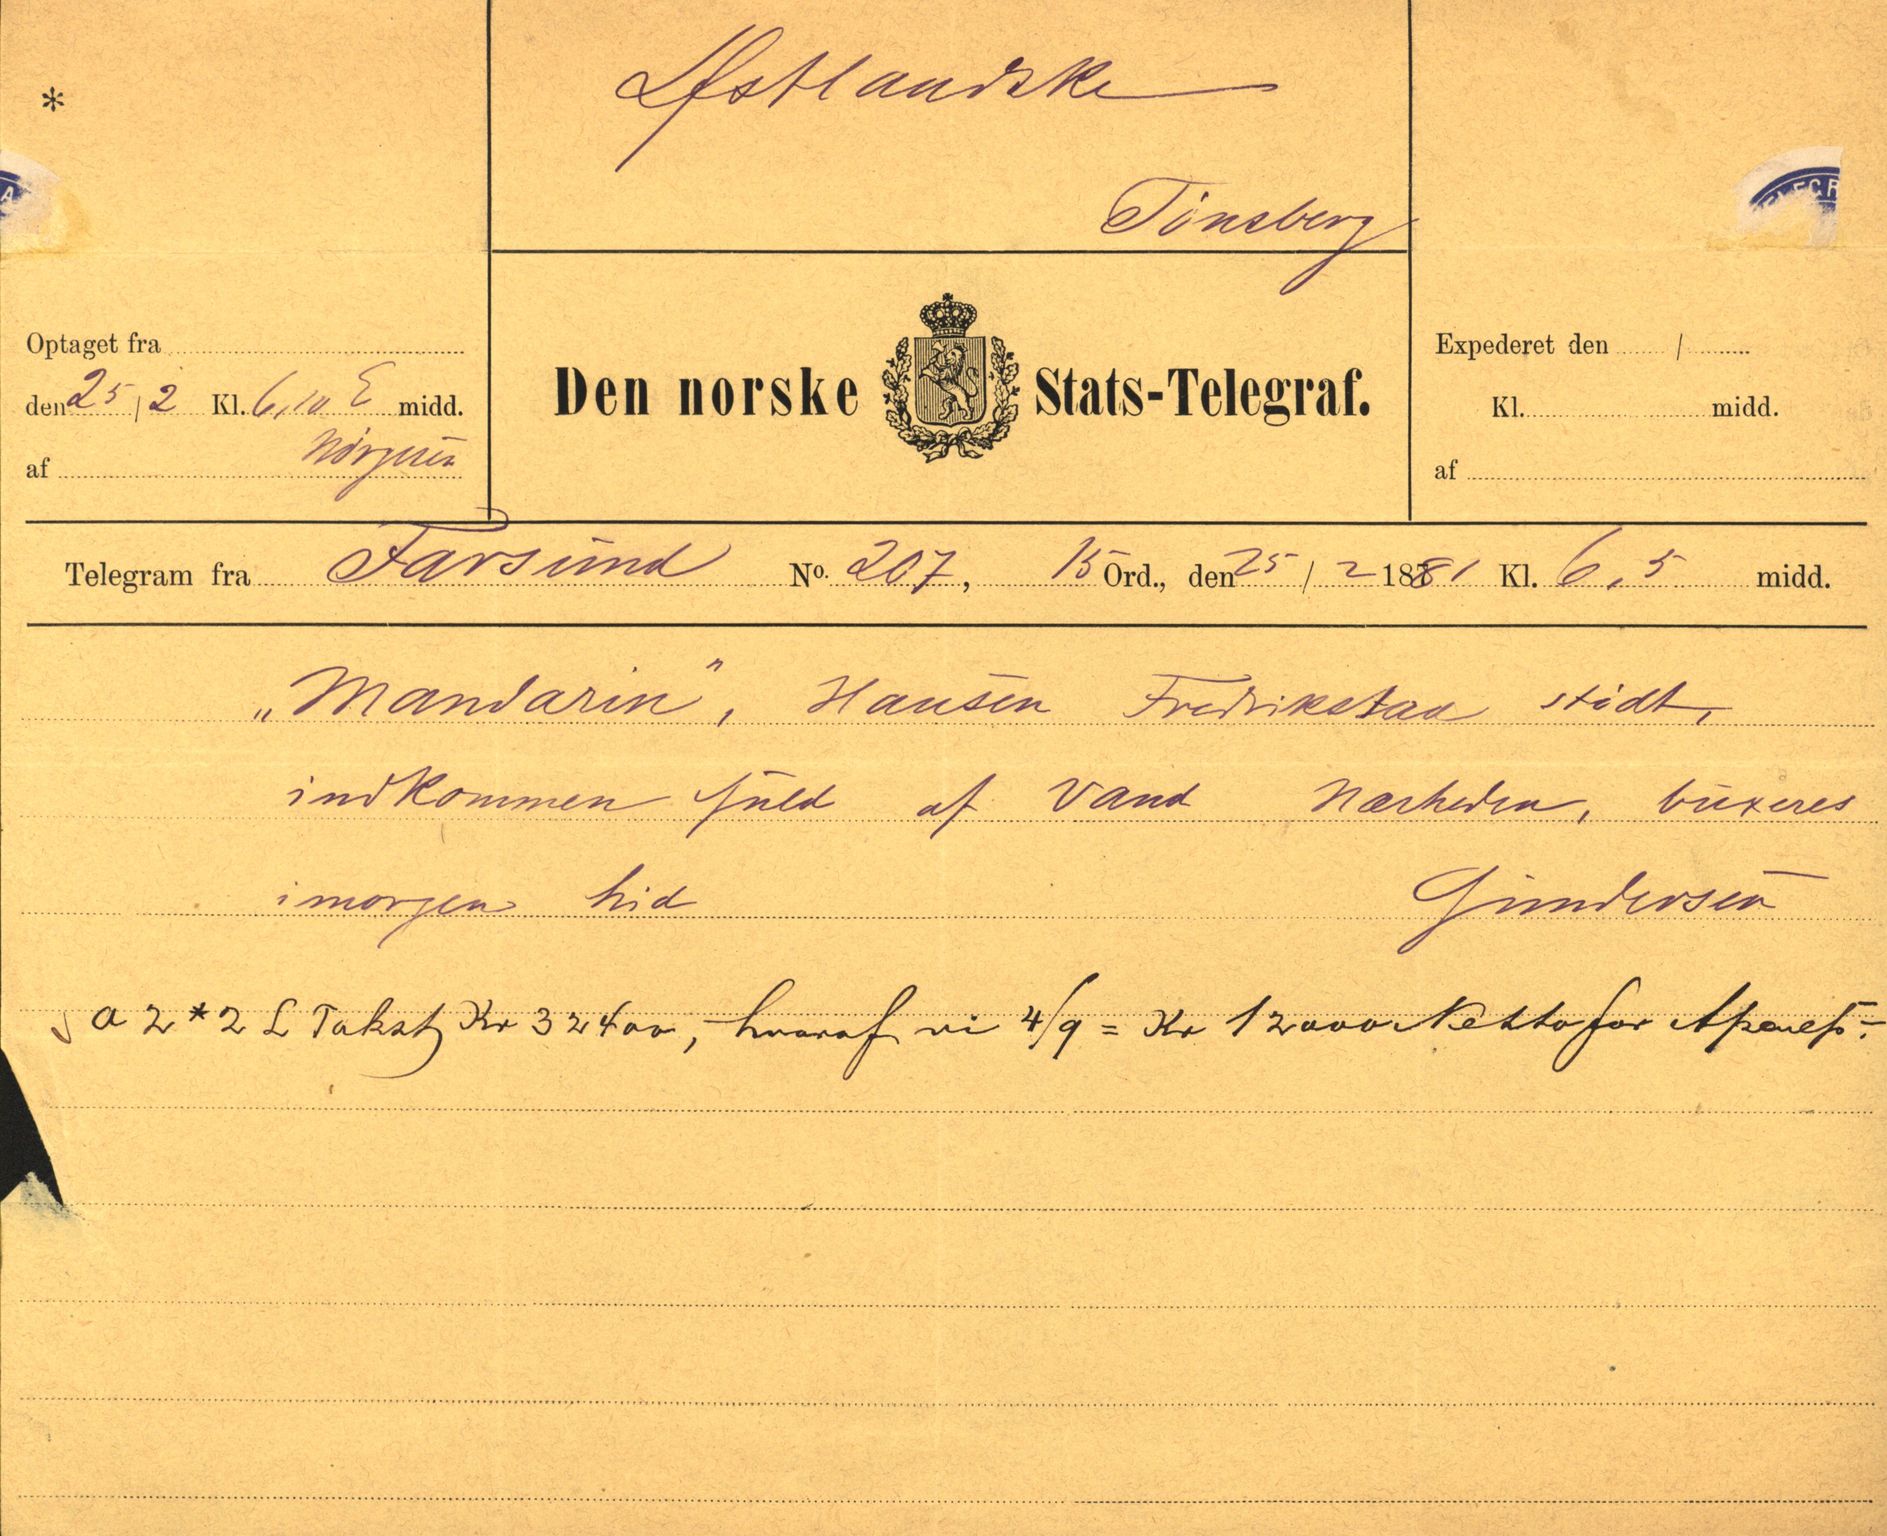 *
Østlandske
Tönsberg
Optaget fra
den 25/2 Kl. 6,10 E midd.
af
Den norske Stats-Telegraf.
Expederet den /
Kl. midd.
af
TELEGR
Telegram fra Farsund No. 207, 15 Ord., den 25/2 1881 Kl. 6,5 midd.
„Mandarin", Hansen Fredrikstad stödt,
indkommen fuld af Vand Nærheden, buxeres
imorgen hid Gundersen
a 2*2 L Takst Kr 32400, hvoraf vi 4/9 = Kr 12000 Netto for